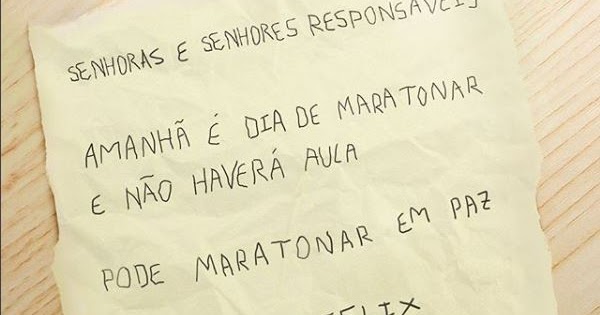 SENHORAS E SENHORES RESPONSÁVEIS
AMANHÃ É DIA DE MARATONAR
E NÃO HAVERÁ AULA
PODE MARATONAR EM PAZ